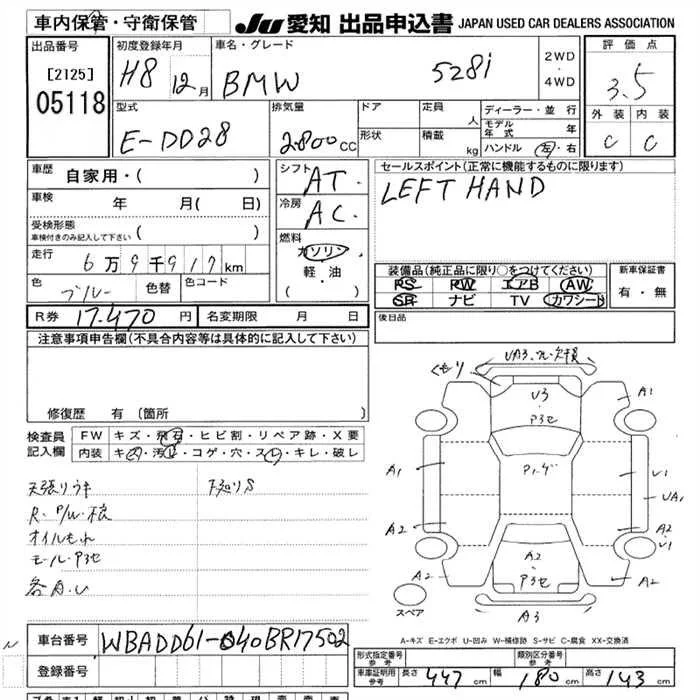 車内保管・守衛保管
JU 愛知 出品申込書 JAPAN USED CAR DEALERS ASSOCIATION
出品番号
[2125]
05118
初度登録年月
H8 12月
車名・グレード
BMW 528i
2WD
・
4WD
評価点
3.5
外装 内装
C C
型式
E-DD28
排気量
2.800cc
ドア
形状
定員 人
積載 kg
ディーラー・並行
モデル年式 年
ハンドル 左・右
車歴 自家用・( )
車検 年 月( 日)
受検形態
車検付きのみ記入して下さい ( )
走行 6万9千917km
色 ブルー 色替 色コード
シフト AT.
冷房 AC.
燃料
ガソリン
軽・油
( ・ )
セールスポイント(正常に機能するものに限ります)
LEFT HAND
装備品(純正品に限り○をつけてください)
PS PW エアB AW
SR ナビ TV カワシート
新車保証書
有・無
R券 17.470円 名変期限 月 日
後日品
注意事項申告欄(不具合内容等は具体的に記入して下さい)
修復歴 有 (箇所
検査員記入欄
FW キズ・飛石・ヒビ割・リペア跡・X要
内装 キズ・汚れ・コゲ・穴・スレ・キレ・破レ
天張りウキ 下廻りS
R・P/W不良
オイルもれ
モールP3セ
各A.U
UA3
欠損
U3
P3セ
A1
A1
U1
UA1
A2
A2
U1
A2
A2
P3セ
A2
A3
スペア
A-キズ E-エクボ U-凹み W-補修跡 S-サビ C-腐食 XX-交換済
車台番号 WBADD61-040BR17502
登録番号
形式指定番号
参考
類別区分番号
参考
車庫証明用
参考
長さ 447cm 幅 180cm 高さ 143cm